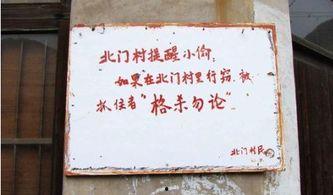 北门村提醒小偷:
如果在北门村里行窃，被
抓住者“格杀勿论”
北门村民